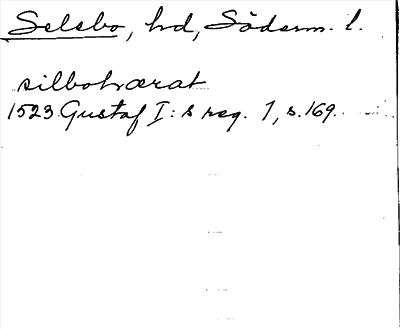 Selebo, hd, Söderm. l.
silbohærat
1523 Gustaf I: s reg. 1, s. 169.